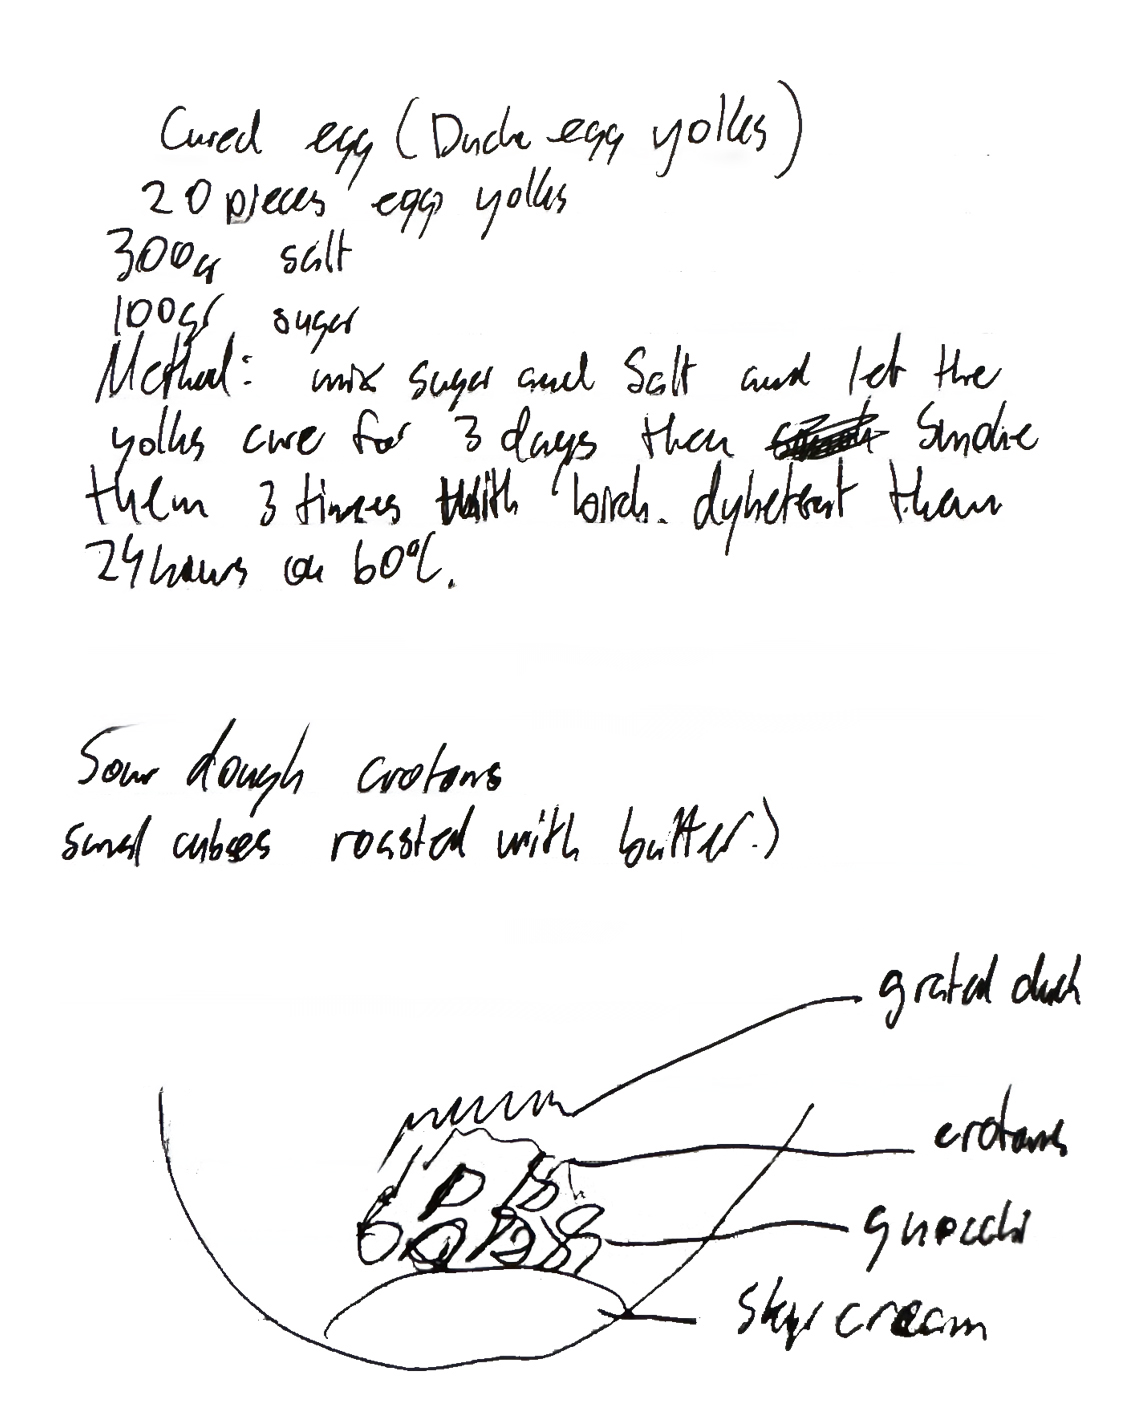 Cured egg (Duck egg yolks)
20 pieces egg yolks
300gr salt
100gr sugar
Method: mix sugar and Salt and let the
yolks cure for 3 days then Smoke
them 3 times with birch. dyhetrat them
24 hours on 60°C.
Sour dough crotons
small cubes roasted with butter.)
grated duck
crotons
gnocchi
Skyr cream